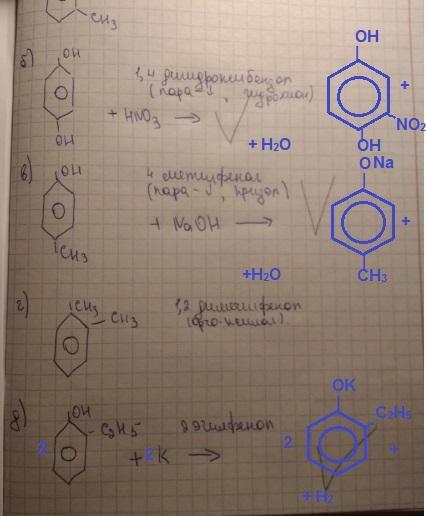 CH₃
б) OH
1,4 дигидроксибензол
(пара- , гидрохинон)
+ HNO₃ →
OH
OH
+
NO₂
OH
+ H₂O
в) OH
4 метилфенол
(пара- , крезол)
+ NaOH →
CH₃
ONa
+
CH₃
+H₂O
г) CH₃
CH₃
1,2 диметилфенол
(орто-ксилол)
д) OH
2
C₂H₅
2 этилфенол
+ 2K →
OK
C₂H₅
2
+
+ H₂